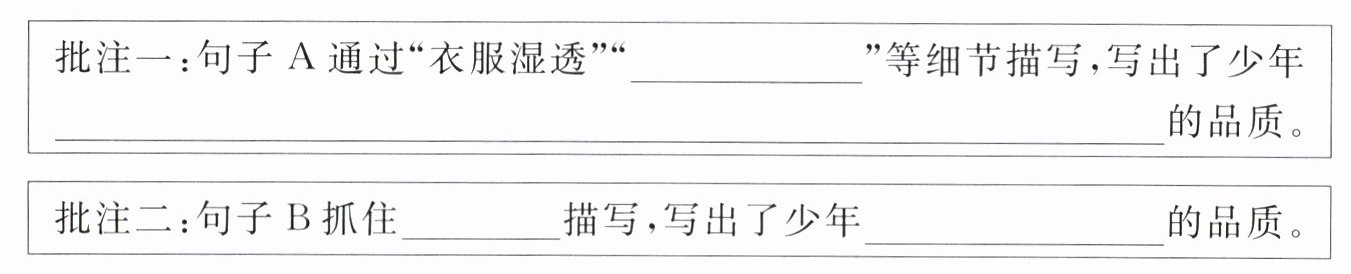 批注一:句子 A 通过“衣服湿透”“____________”等细节描写,写出了少年
____________________________________________________________的品质。
批注二:句子 B 抓住________描写,写出了少年________________的品质。